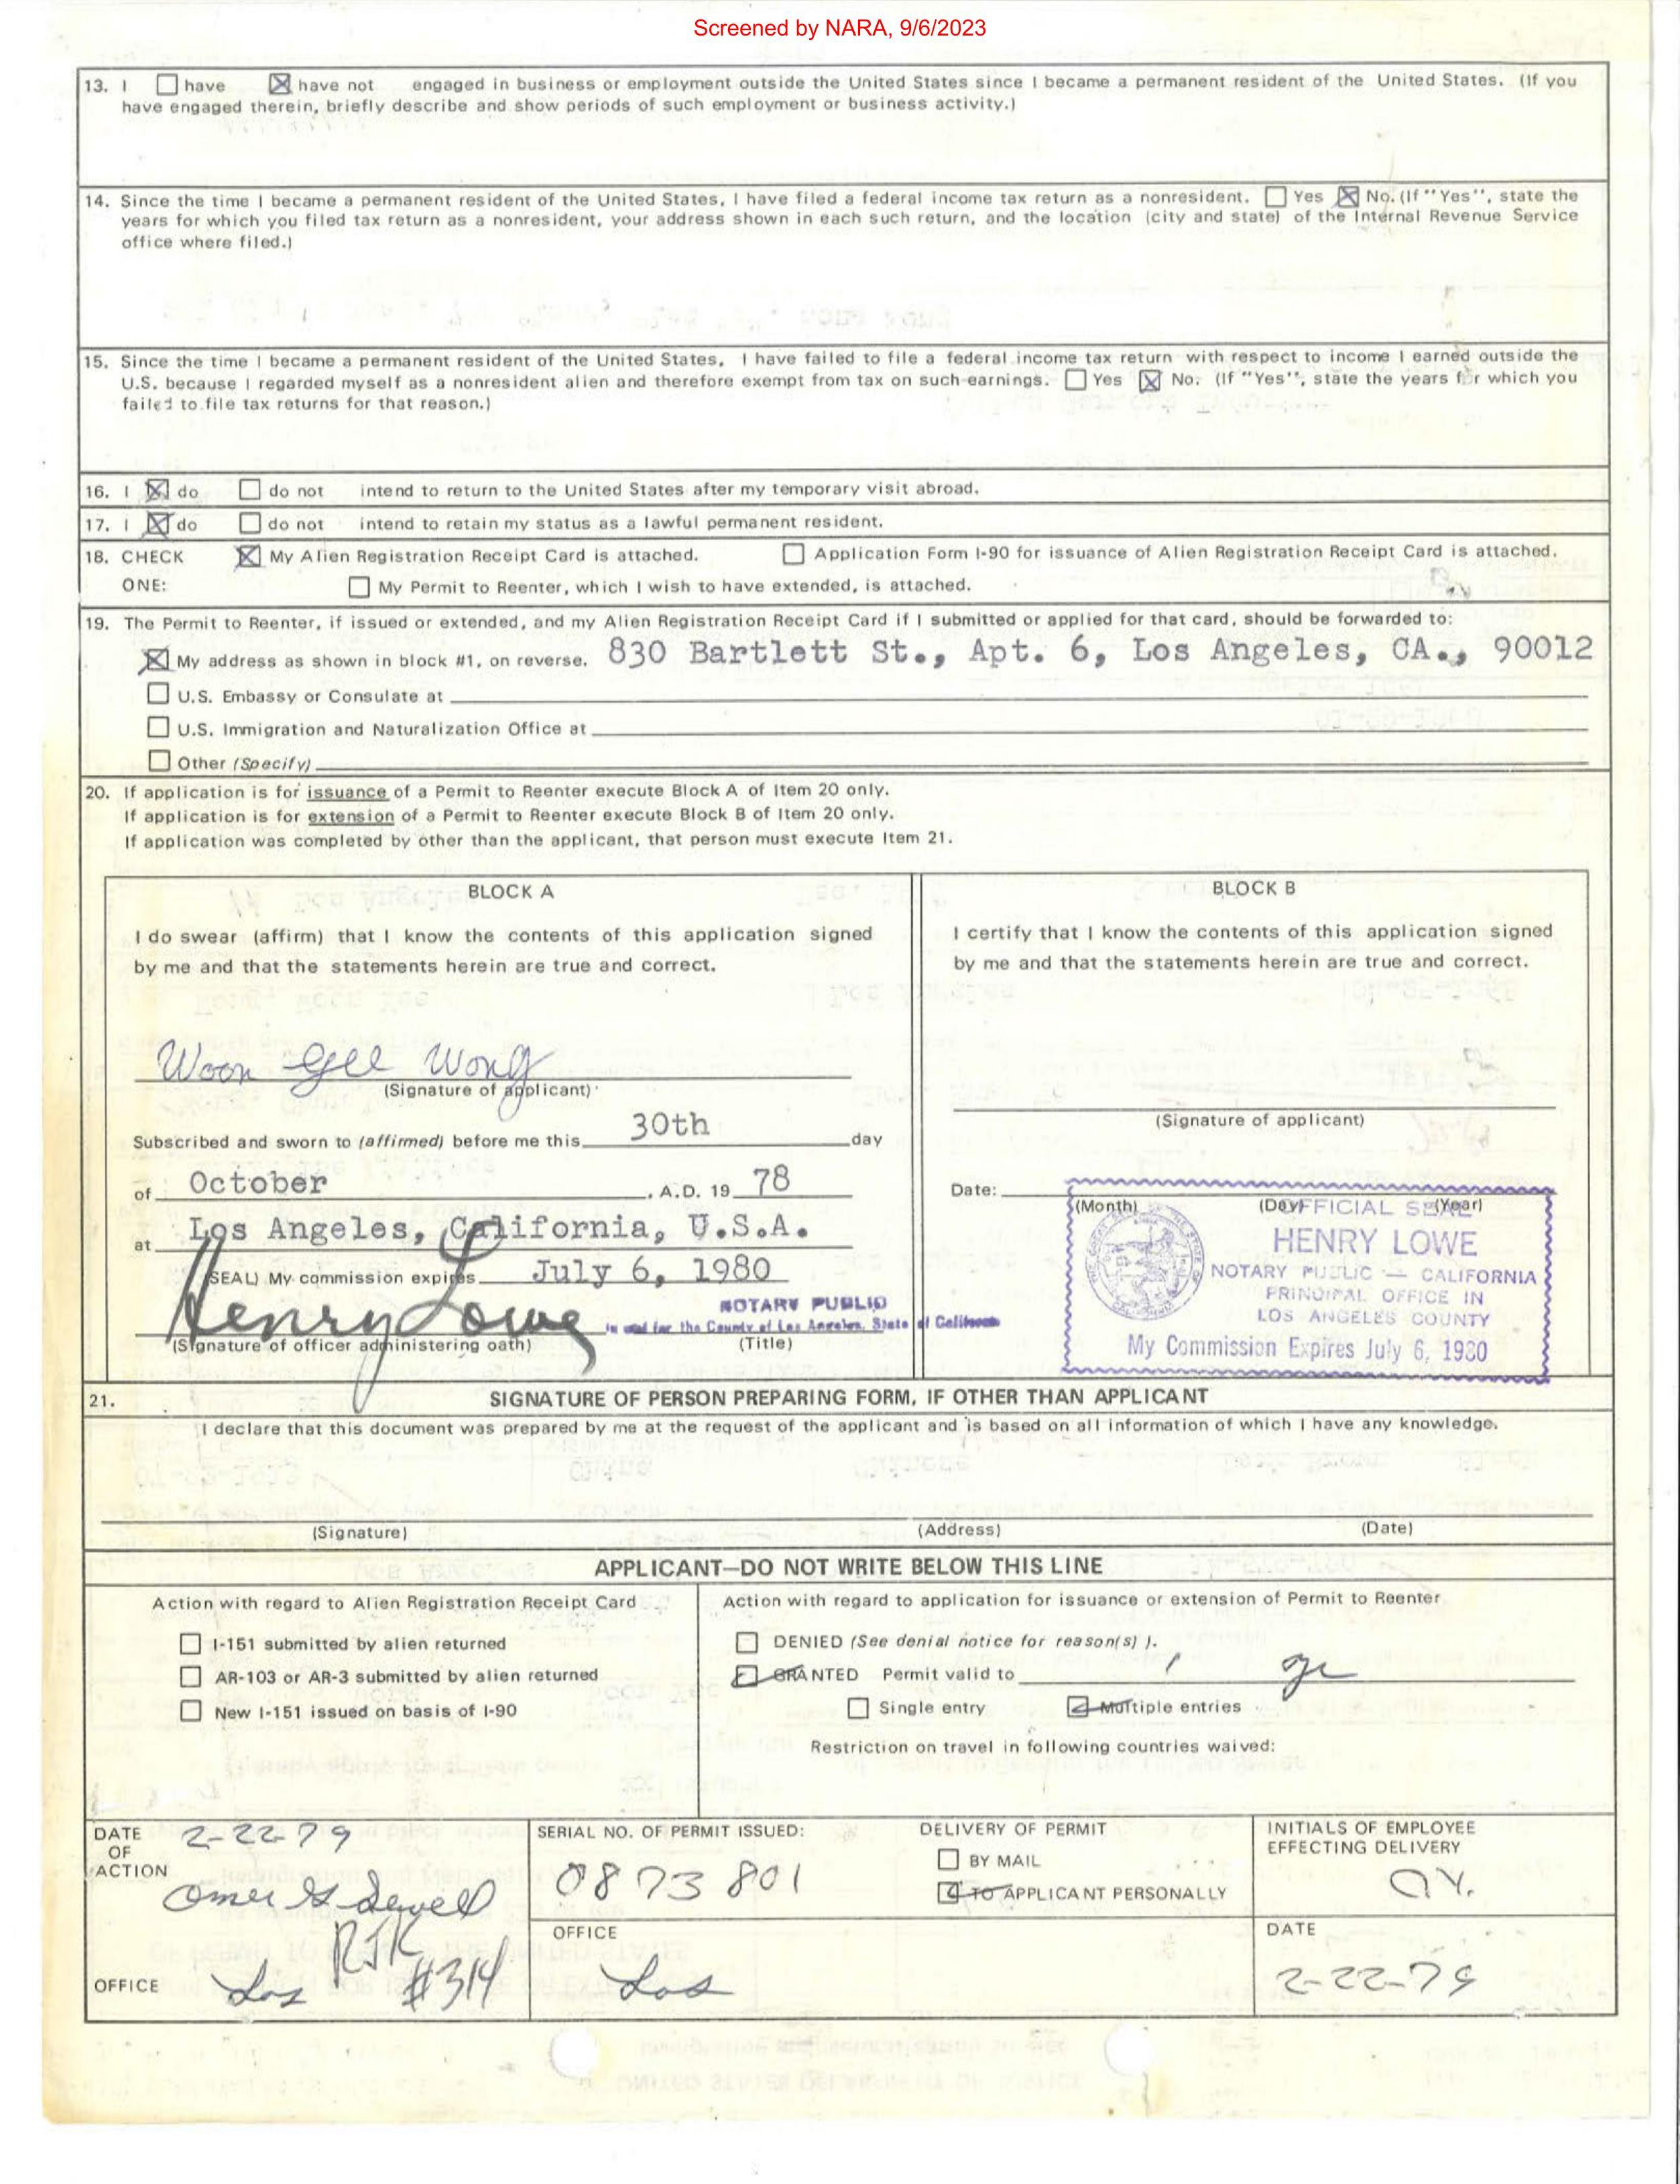 Screened by NARA, 9/6/2023
13. I ☐ have ☒ have not engaged in business or employment outside the United States since I became a permanent resident of the United States. (If you
have engaged therein, briefly describe and show periods of such employment or business activity.)
14. Since the time I became a permanent resident of the United States, I have filed a federal income tax return as a nonresident. ☐ Yes ☒ No. (If "Yes", state the
years for which you filed tax return as a nonresident, your address shown in each such return, and the location (city and state) of the Internal Revenue Service
office where filed.)
15. Since the time I became a permanent resident of the United States, I have failed to file a federal income tax return with respect to income I earned outside the
U.S. because I regarded myself as a nonresident alien and therefore exempt from tax on such earnings. ☐ Yes ☒ No. (If "Yes", state the years for which you
failed to file tax returns for that reason.)
16. I ☒ do ☐ do not intend to return to the United States after my temporary visit abroad.
17. I ☒ do ☐ do not intend to retain my status as a lawful permanent resident.
18. CHECK ☒ My Alien Registration Receipt Card is attached. ☐ Application Form I-90 for issuance of Alien Registration Receipt Card is attached.
ONE: ☐ My Permit to Reenter, which I wish to have extended, is attached.
19. The Permit to Reenter, if issued or extended, and my Alien Registration Receipt Card if I submitted or applied for that card, should be forwarded to:
☒ My address as shown in block #1, on reverse. 830 Bartlett St., Apt. 6, Los Angeles, CA., 90012
☐ U.S. Embassy or Consulate at
☐ U.S. Immigration and Naturalization Office at
☐ Other (Specify)
20. If application is for issuance of a Permit to Reenter execute Block A of Item 20 only.
If application is for extension of a Permit to Reenter execute Block B of Item 20 only.
If application was completed by other than the applicant, that person must execute Item 21.
BLOCK A
I do swear (affirm) that I know the contents of this application signed
by me and that the statements herein are true and correct.
Woon Gee Wong
(Signature of applicant)
Subscribed and sworn to (affirmed) before me this 30th day
of October, A.D. 19 78
at Los Angeles, California, U.S.A.
(SEAL) My commission expires July 6, 1980
Henry Lowe
NOTARY PUBLIC
in and for the County of Los Angeles, State of California
(Signature of officer administering oath) (Title)
BLOCK B
I certify that I know the contents of this application signed
by me and that the statements herein are true and correct.
(Signature of applicant)
Date:
(Month) (Day) (Year)
OFFICIAL SEAL
HENRY LOWE
NOTARY PUBLIC — CALIFORNIA
PRINCIPAL OFFICE IN
LOS ANGELES COUNTY
My Commission Expires July 6, 1980
21. SIGNATURE OF PERSON PREPARING FORM, IF OTHER THAN APPLICANT
I declare that this document was prepared by me at the request of the applicant and is based on all information of which I have any knowledge.
(Signature) (Address) (Date)
APPLICANT—DO NOT WRITE BELOW THIS LINE
Action with regard to Alien Registration Receipt Card
☐ I-151 submitted by alien returned
☐ AR-103 or AR-3 submitted by alien returned
☐ New I-151 issued on basis of I-90
Action with regard to application for issuance or extension of Permit to Reenter
☐ DENIED (See denial notice for reason(s) ).
☑ GRANTED Permit valid to
☐ Single entry ☑ Multiple entries
Restriction on travel in following countries waived:
DATE OF ACTION 2-22-79
Omer G. Sewell
RJK
OFFICE Los #314
SERIAL NO. OF PERMIT ISSUED:
0873801
OFFICE
Los
DELIVERY OF PERMIT
☐ BY MAIL
☑ TO APPLICANT PERSONALLY
INITIALS OF EMPLOYEE
EFFECTING DELIVERY
DATE
2-22-79